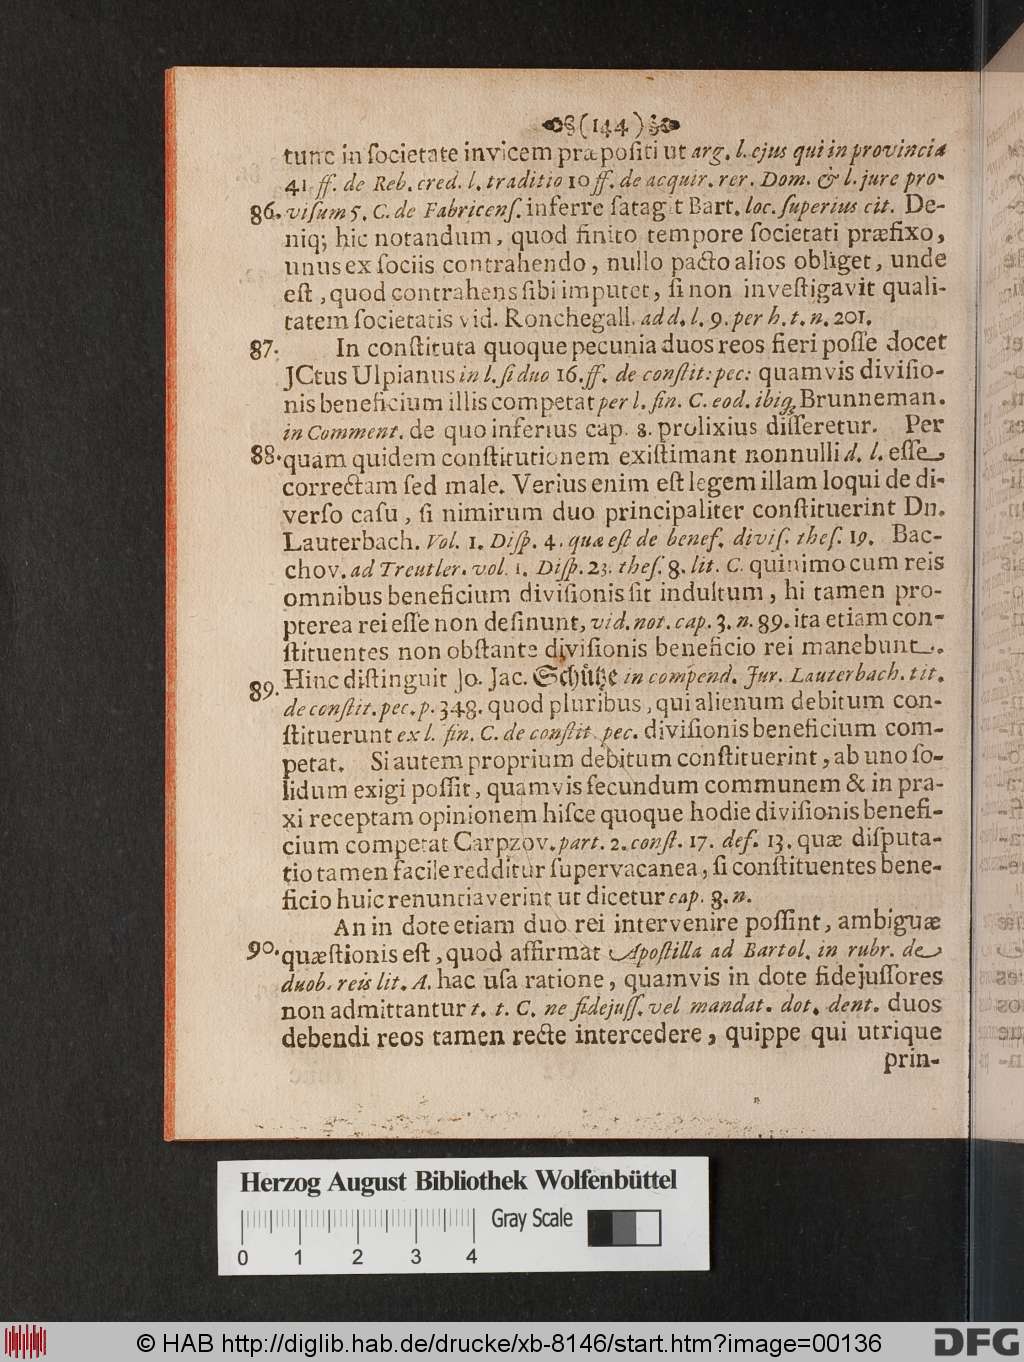 §(144)§
tunc in societate invicem præpositi ut arg. l. ejus qui in provincia
41. ff. de Reb. cred. l. traditio 10 ff. de acquir. rer. Dom. & l. jure pro-
86. visum 5. C. de Fabricens. inferre satagit Bart. loc. superius cit. De-
niq; hic notandum, quod finito tempore societati præfixo,
unus ex sociis contrahendo, nullo pacto alios obliget, unde
est, quod contrahens sibi imputet, si non investigavit quali-
tatem societatis vid. Ronchegall. ad d. l. 9. per h. t. n. 201.
87. In constituta quoque pecunia duos reos fieri posse docet
JCtus Ulpianus in l. si duo 16. ff. de constit: pec: quamvis divisio-
nis beneficium illis competat per l. fin. C. eod. ibiq; Brunneman.
in Comment. de quo inferius cap. 8. prolixius disseretur. Per
88. quam quidem constitutionem existimant nonnulli d. l. esse
correctam sed male. Verius enim est legem illam loqui de di-
verso casu, si nimirum duo principaliter constituerint Dn.
Lauterbach. Vol. 1. Disp. 4. quæ est de benef. divis. thes. 19. Bac-
chov. ad Treutler. vol. 1. Disp. 23. thes. 8. lit. C. quinimo cum reis
omnibus beneficium divisionis sit indultum, hi tamen pro-
pterea rei esse non desinunt, vid. not. cap. 3. n. 89. ita etiam con-
stituentes non obstante divisionis beneficio rei manebunt.
89. Hinc distinguit Jo. Jac. Schütze in compend. Jur. Lauterbach. tit.
de constit. pec. p. 348. quod pluribus, qui alienum debitum con-
stituerunt ex l. fin. C. de constit. pec. divisionis beneficium com-
petat. Si autem proprium debitum constituerint, ab uno so-
lidum exigi possit, quamvis secundum communem & in pra-
xi receptam opinionem hisce quoque hodie divisionis benefi-
cium competat Carpzov. part. 2. const. 17. def. 13. quæ disputa-
tio tamen facile redditur supervacanea, si constituentes bene-
ficio huic renuntiaverint ut dicetur cap. 8. n.
An in dote etiam duo rei intervenire possint, ambiguæ
90. quæstionis est, quod affirmat Apostilla ad Bartol. in rubr. de
duob. reis lit. A. hac usa ratione, quamvis in dote fidejussores
non admittantur t. t. C. ne fidejuss. vel mandat. dot. dent. duos
debendi reos tamen recte intercedere, quippe qui utrique
prin-
Herzog August Bibliothek Wolfenbüttel
Gray Scale
0 1 2 3 4
© HAB http://diglib.hab.de/drucke/xb-8146/start.htm?image=00136
DFG